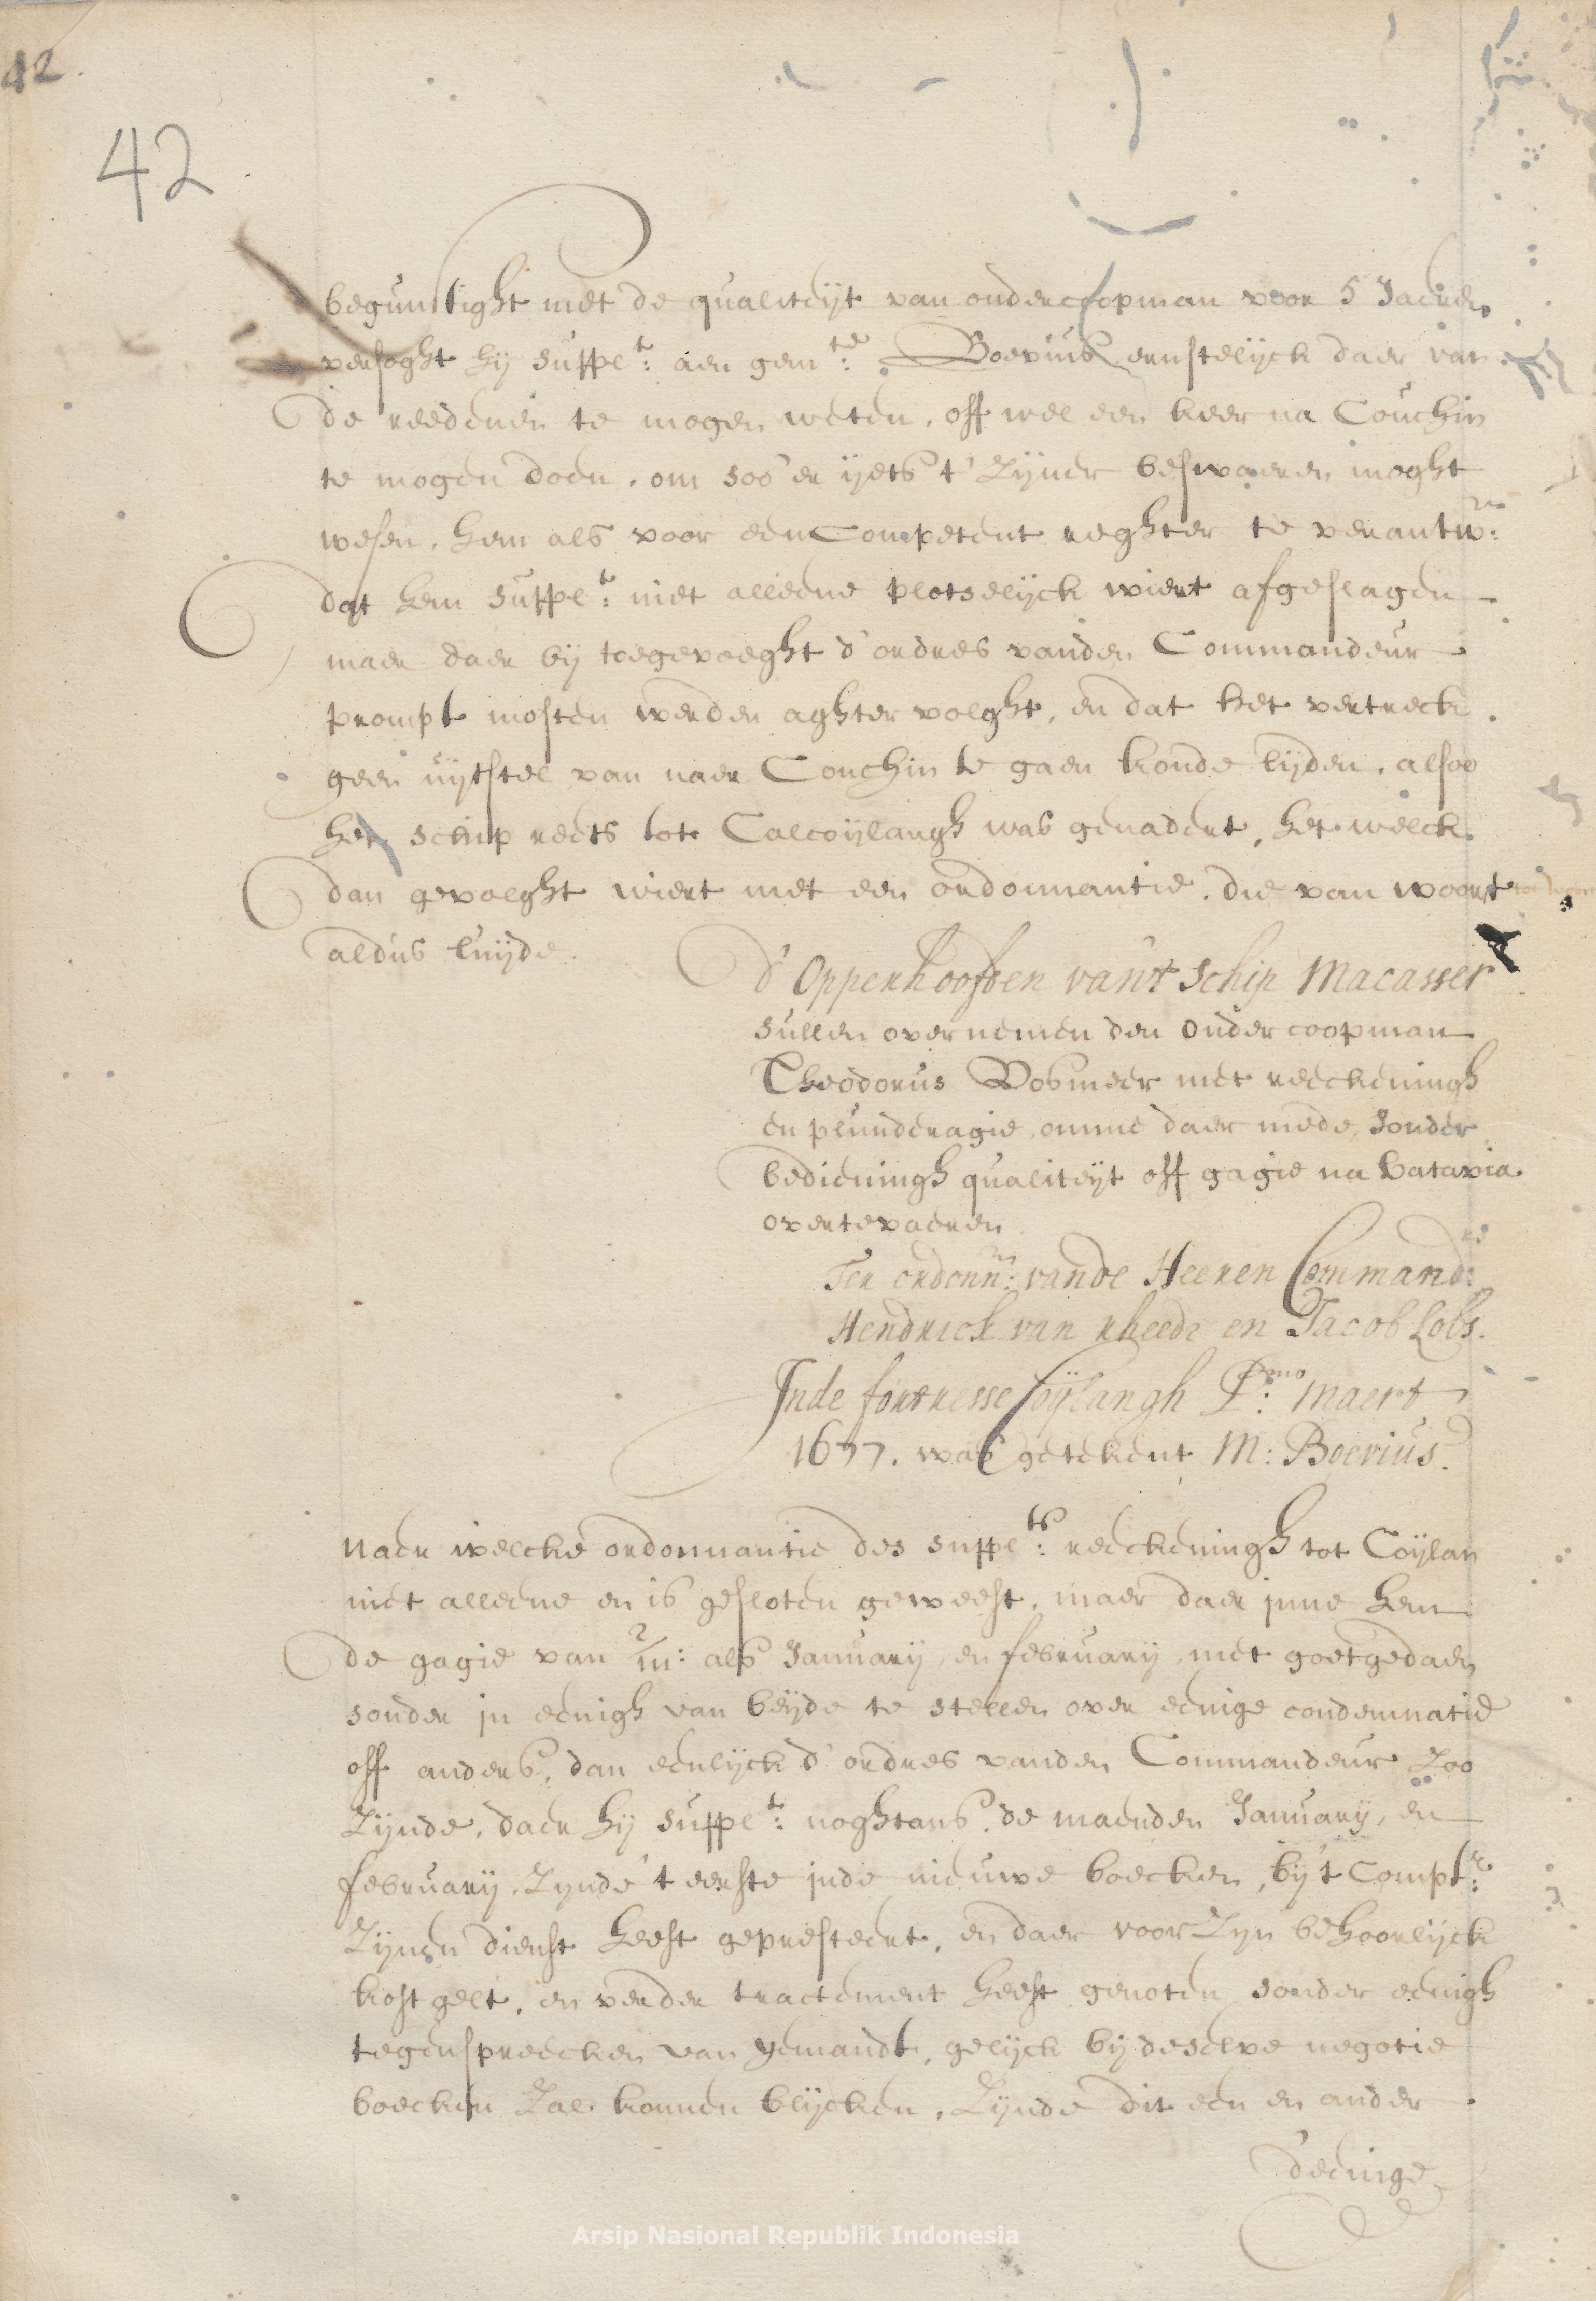 42.
42
begunstight met de qualiteijt van ondercoopman voor 5 Jaeren
versoght hij supplt: aen gemte: Boevius ernstelijck daer van
de reedenen te mogen weten, off wel een keer na Couchin
te mogen doen, om soo 'er ijets t' Zijner beswaeren moght
wesen, hem als voor een Competent reghter te verantw:n
dat hem supplt: niet alleene plotselijck wiert afgeslagen
maer daer bij toegevoeght d' ordres vanden Commandeur
prompt mosten werden aghtervolght, en dat het vertreck
geen uijtstel van naer Couchin te gaen konde lijden, alsoo
het schip reets tot Calcoijlangh was genadert, het welck
dan gevolght wiert met een ordonnantie, die van woort tot woort
aldus luijde.
d' Opperhoofden van't schip Macasser
sullen overnemen den ondercoopman
Theodorus Vosmeer met reeckeningh
en plunderagie, omme daer mede, sonder
bedieningh qualiteijt off gagie na batavia
overtevaeren
Ter ordonn:n vande Heeren Command:rs
Hendrick van rheede en Jacob Lobs.
Inde fortresse Coijlangh P:mo maert
1677. was getekent M: Boevius.
Naer welcke ordonnantie des supplts: reeckeningh tot Coijlan
niet alleene en is gesloten geweest, maer daer inne hem
de gagie van 2/m: als January, en february, niet goetgedaen
sonder in eenigh van beijde te stellen over eenige condemnatie
off anders, dan eenlijck d' ordres vanden Commandeur zoo
Zijnde, daer hij supplt: noghtans de maenden January, en
february, Zynde 't eerste inde nieuwe boecken, bij 't Compt:r
Zijnen dienst heeft gepresteert, en daer voor Zijn behoorlijck
kostgelt, en verder tractement heeft genoten sonder eenigh
tegenspreecken van ymandt, gelijck bij deselve negotie
boecken Zal konnen blijcken, Zijnde dit een en ander
d'eenige
Arsip Nasional Republik Indonesia